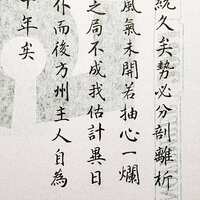 統久矣勢必分剖離析
風氣未開若抽心一爛
之局不成我估計異日
仆而後方州主人自為
十年矣